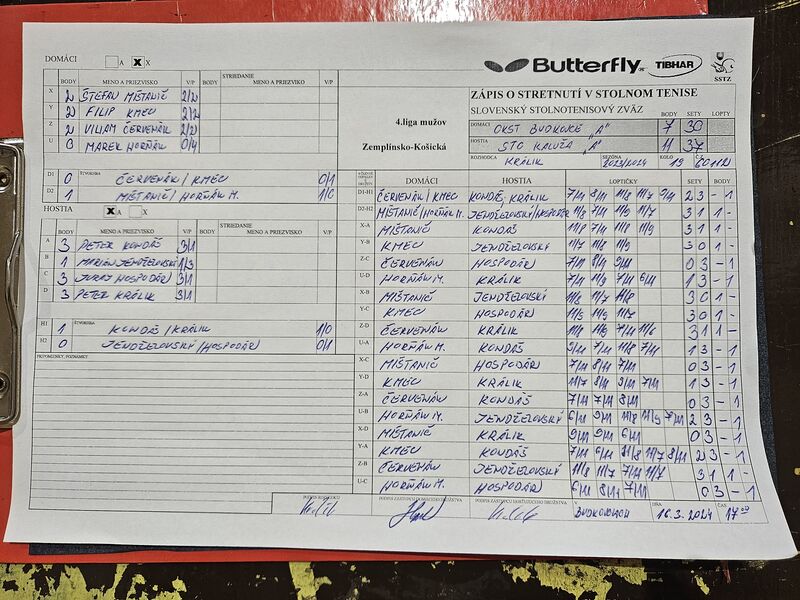 DOMÁCI A X X
Butterfly TIBHAR SSTZ
BODY MENO A PRIEZVISKO V/P BODY STRIEDANIE MENO A PRIEZVIKO V/P
X 2 ŠTEFAN MIŠTANIČ 2/2
Y 2 FILIP KMEC 2/2
Z 2 VILIAM ČERVENÁK 2/2
U 0 MAREK HORŇÁK 0/4
4.liga mužov
Zemplínsko-Košická
ZÁPIS O STRETNUTÍ V STOLNOM TENISE
SLOVENSKÝ STOLNOTENISOVÝ ZVÄZ
BODY SETY LOPTY
DOMÁCI OKST BUDKOVCE "A" 7 30
HOSTIA STO KALUŽA "A" 11 37
ROZHODCA KRÁLIK SEZÓNA 2023/2024 KOLO 19
D1 0 ŠTVORHRA ČERVENÁK / KMEC 0/1
D2 1 MIŠTANIČ / HORŇÁK M. 1/0
HOSTIA X A X
BODY MENO A PRIEZVISKO V/P BODY STRIEDANIE MENO A PRIEZVIKO V/P
A 3 PETER KONDÁŠ 3/1
B 1 MARIÁN JENDŽELOVSKÝ 1/3
C 3 JURAJ HOSPODÁR 3/1
D 3 PETER KRÁLIK 3/1
H1 1 ŠTVORHRA KONDÁŠ / KRÁLIK 1/0
H2 0 JENDŽELOVSKÝ / HOSPODÁR 0/1
PRIPOMIENKY, POZNÁMKY
DOMÁCI HOSTIA LOPTIČKY SETY BODY
D1-H1 ČERVENÁK / KMEC KONDÁŠ, KRÁLIK 7/11 8/11 11/8 11/7 9/11 2 3 - 1
D2-H2 MIŠTANIČ / HORŇÁK M. JENDŽELOVSKÝ / HOSPODÁR 11/8 7/11 11/9 11/7 3 1 1 -
X-A MIŠTANIČ KONDÁŠ 11/8 7/11 11/8 11/9 3 1 1 -
Y-B KMEC JENDŽELOVSKÝ 11/7 11/8 11/9 3 0 1 -
Z-C ČERVENÁK HOSPODÁR 7/11 8/11 9/11 0 3 - 1
U-D HORŇÁK M. KRÁLIK 7/11 11/9 7/11 6/11 1 3 - 1
X-B MIŠTANIČ JENDŽELOVSKÝ 11/8 11/7 11/8 3 0 1 -
Y-C KMEC HOSPODÁR 11/5 11/9 11/7 3 0 1 -
Z-D ČERVENÁK KRÁLIK 11/8 11/6 7/11 11/6 3 1 1 -
U-A HORŇÁK M. KONDÁŠ 9/11 7/11 11/8 7/11 1 3 - 1
X-C MIŠTANIČ HOSPODÁR 7/11 7/11 8/11 0 3 - 1
Y-D KMEC KRÁLIK 11/7 8/11 9/11 7/11 1 3 - 1
Z-A ČERVENÁK KONDÁŠ 7/11 7/11 8/11 0 3 - 1
U-B HORŇÁK M. JENDŽELOVSKÝ 6/11 9/11 11/8 11/9 7/11 2 3 - 1
X-D MIŠTANIČ KRÁLIK 9/11 9/11 6/11 0 3 - 1
Y-A KMEC KONDÁŠ 7/11 6/11 11/8 11/7 8/11 2 3 - 1
Z-B ČERVENÁK JENDŽELOVSKÝ 11/8 11/7 7/11 11/7 3 1 1 -
U-C HORŇÁK M. HOSPODÁR 6/11 8/11 7/11 0 3 - 1
PODPIS ROZHODCU PODPIS ZÁSTUPCU DOMÁCEHO DRUŽSTVA PODPIS ZÁSTUPCU HOSŤUJÚCEHO DRUŽSTVA DŇA ČAS
16.3.2024 17:00